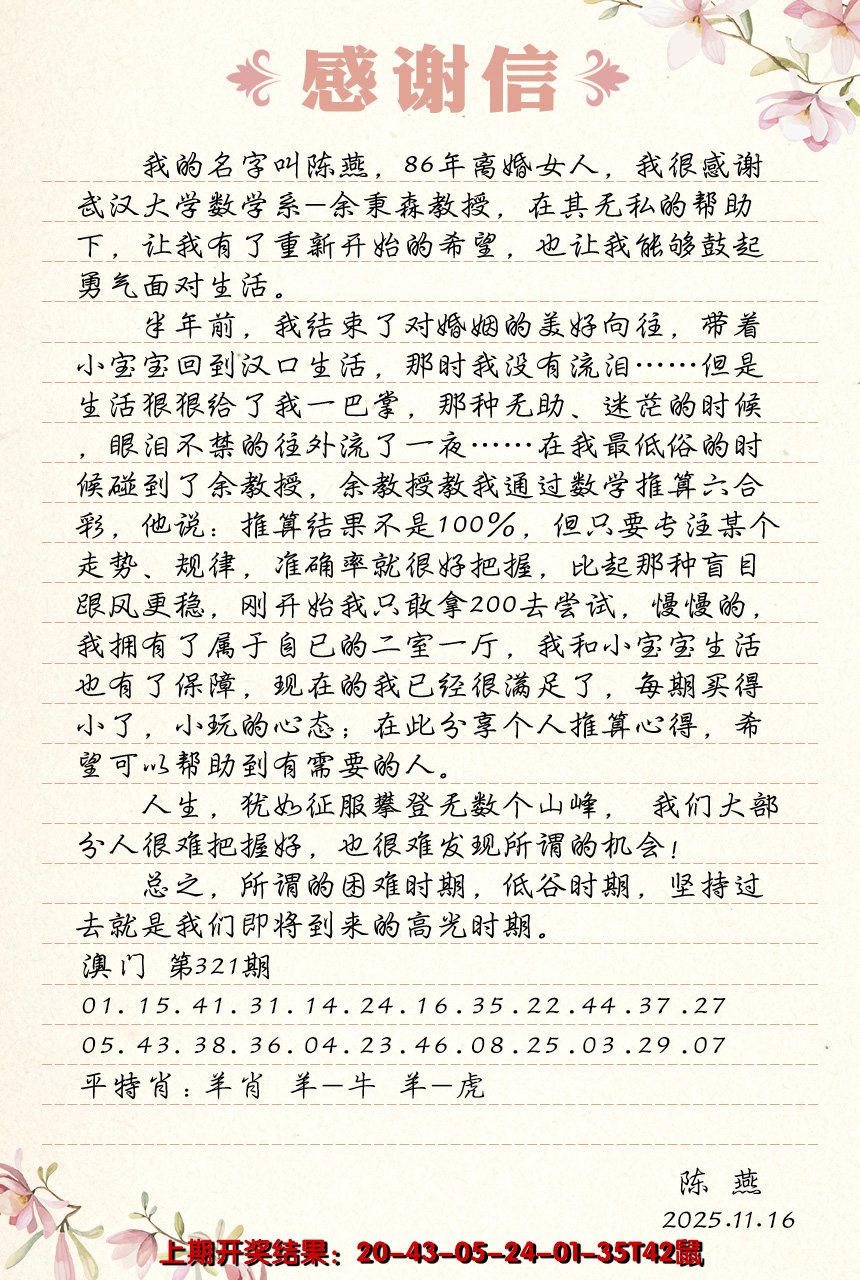 感谢信
我的名字叫陈燕，86年离婚女人，我很感谢
武汉大学数学系—余秉森教授，在其无私的帮助
下，让我有了重新开始的希望，也让我能够鼓起
勇气面对生活。
半年前，我结束了对婚姻的美好向往，带着
小宝宝回到汉口生活，那时我没有流泪……但是
生活狠狠给了我一巴掌，那种无助、迷茫的时候
，眼泪不禁的往外流了一夜……在我最低俗的时
候碰到了余教授，余教授教我通过数学推算六合
彩，他说：推算结果不是100%，但只要专注某个
走势、规律，准确率就很好把握，比起那种盲目
跟风更稳，刚开始我只敢拿200去尝试，慢慢的，
我拥有了属于自已的二室一厅，我和小宝宝生活
也有了保障，现在的我已经很满足了，每期买得
小了，小玩的心态；在此分享个人推算心得，希
望可以帮助到有需要的人。
人生，犹如征服攀登无数个山峰， 我们大部
分人很难把握好，也很难发现所谓的机会！
总之，所谓的困难时期，低谷时期，坚持过
去就是我们即将到来的高光时期。
澳门 第321期
01.15.41.31.14.24.16.35.22.44.37.27
05.43.38.36.04.23.46.08.25.03.29.07
平特肖：羊肖 羊—牛 羊—虎
陈 燕
2025.11.16
上期开奖结果：20-43-05-24-01-35T42鼠